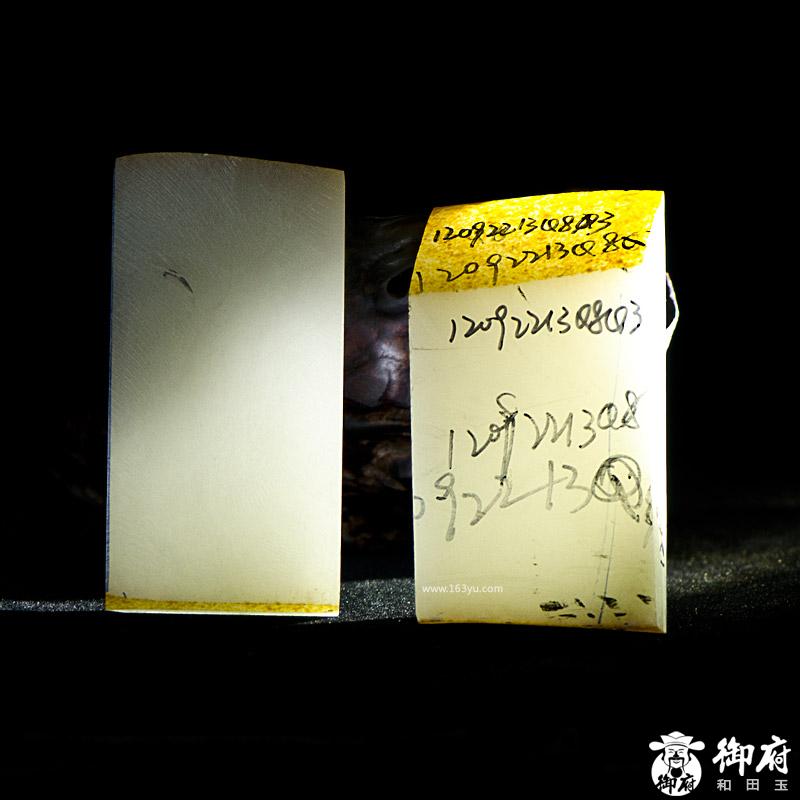 12092213Q8Q3
12092213Q8Q
12092213Q8Q3
12092213Q8
092213Q
www.163yu.com
御府
御府
和田玉